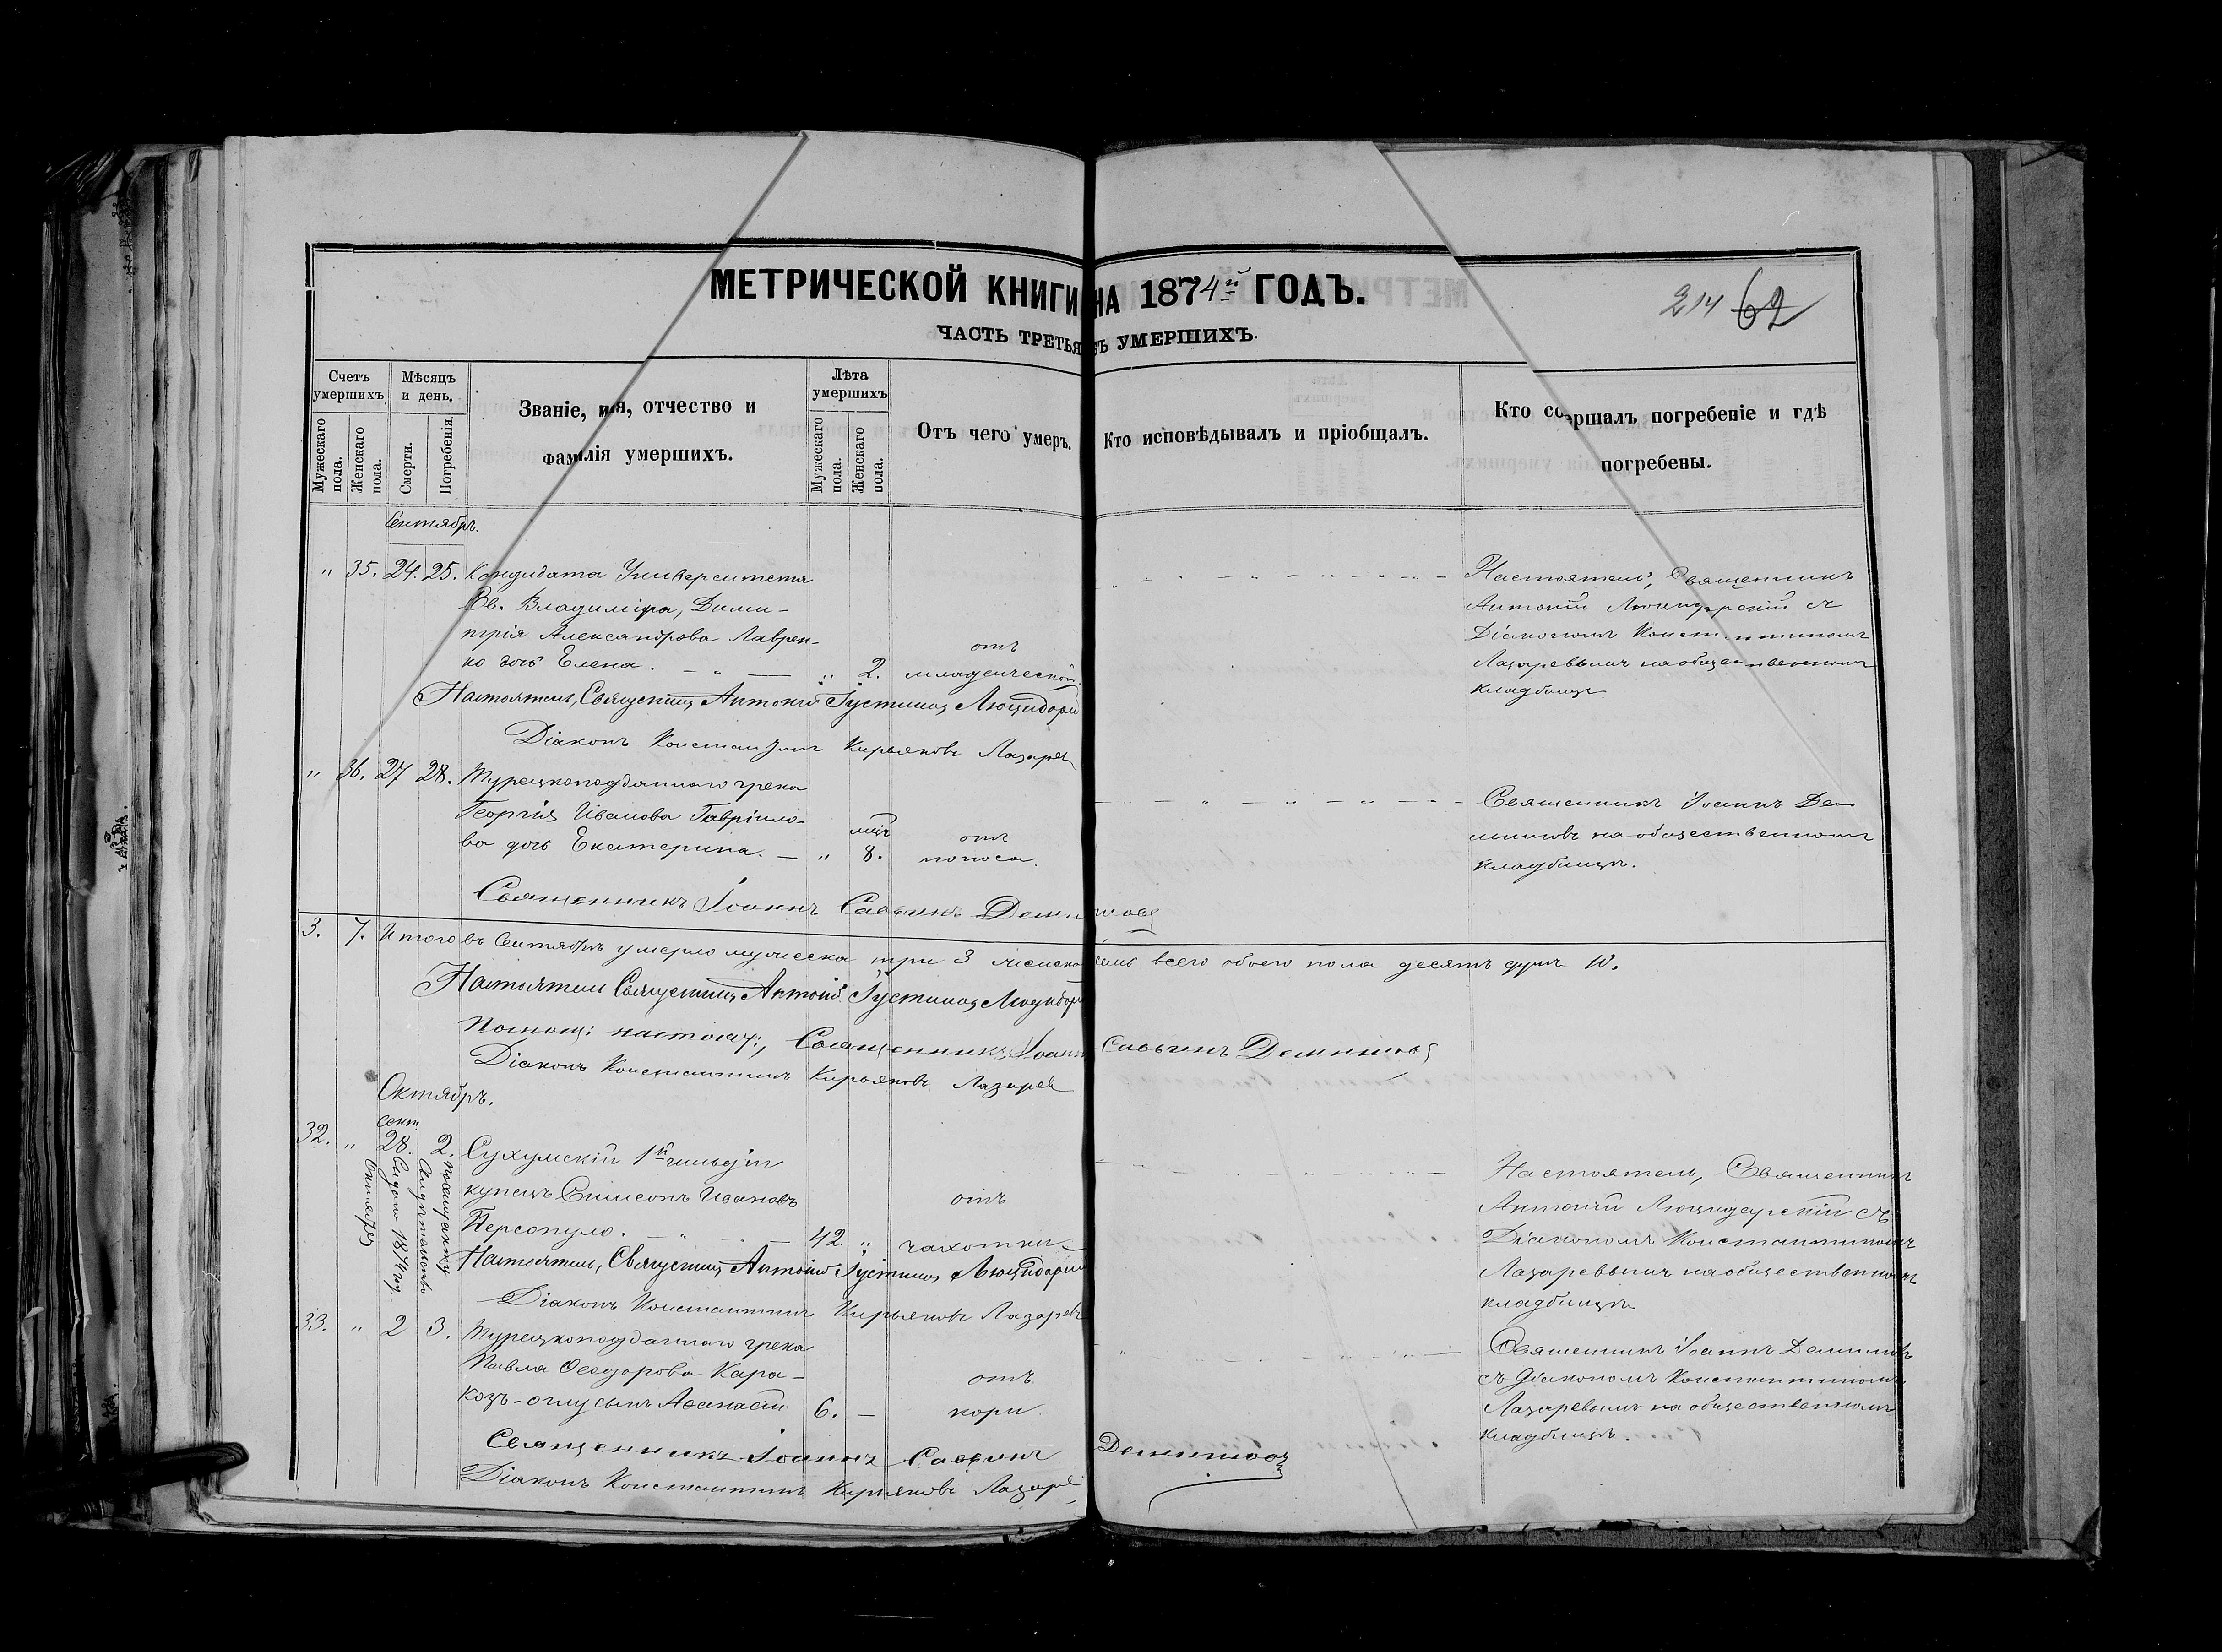 МЕТРИЧЕСКОЙ КНИГИ НА 1874й ГОДЪ.
214 62
ЧАСТЬ ТРЕТЬЯ УМЕРШИХЪ.
Счетъ умершихъ.
Мужескаго пола.
Женскаго пола.
Мѣсяцъ и день.
Смерти.
Погребенія.
Званіе, имя, отчество и
фамилія умершихъ.
Лѣта умершихъ
Мужескаго пола.
Женскаго пола.
Отъ чего умеръ.
Кто исповѣдывалъ и пріобщалъ.
Кто совершалъ погребеніе и гдѣ
погребены.
Сентябрь.
" 35. 24. 25. Кандидата Университета
Св. Владиміра, Дими-
трія Александрова Лаврен-
ко дочь Елена. " 2. отъ младенческой.
Настоятель, Священникъ
Антоній Люцидарскій съ
Діакономъ Константиномъ
Лазаревымъ на общественномъ
кладбищѣ.
Настоятель, Священникъ Антоній Іустиновъ
Діаконъ Константинъ Кирьяковъ Лазаревъ
" 36. 27 28. Турецкоподданнаго грека
Георгія Иванова Гавріило-
ва дочь Екатерина. — " мѣс. 8. отъ поноса.
Священникъ Іоаннъ Де-
миновъ на общественномъ
кладбищѣ.
Священникъ Іоаннъ Саввинъ
3. 7. Итого въ Сентябрѣ умерло мужеска три 3 женска семь всего обоего пола десять душъ 10.
Настоятель Священникъ Антоній Іустиновъ
Помощ: настоят:, Священникъ Іоаннъ Саввинъ
Діаконъ Константинъ Кирьяковъ Лазаревъ
Октябрь.
32. " сент. 28. 2. Сухумскій 1й гильдіи
купецъ Симеонъ Ивановъ
Персопуло. 42. " отъ чахотки
1874 году
Октября
Настоятель, Священникъ
Антоній Люцидарскій съ
Діакономъ Константиномъ
Лазаревымъ на общественномъ
кладбищѣ
Настоятель, Священникъ Антоній Іустиновъ
Діаконъ Константинъ Кирьяковъ Лазаревъ
33. " 2 3. Турецкоподданнаго грека
Павла Ѳеодорова Кара-
козъ-оглу сынъ Аѳанасій 6. — отъ кори.
Священникъ Іоаннъ Деминовъ
съ Діакономъ Константиномъ
Лазаревымъ на общественномъ
кладбищѣ.
Священникъ Іоаннъ Саввинъ
Діаконъ Константинъ Кирьяковъ Лазаревъ